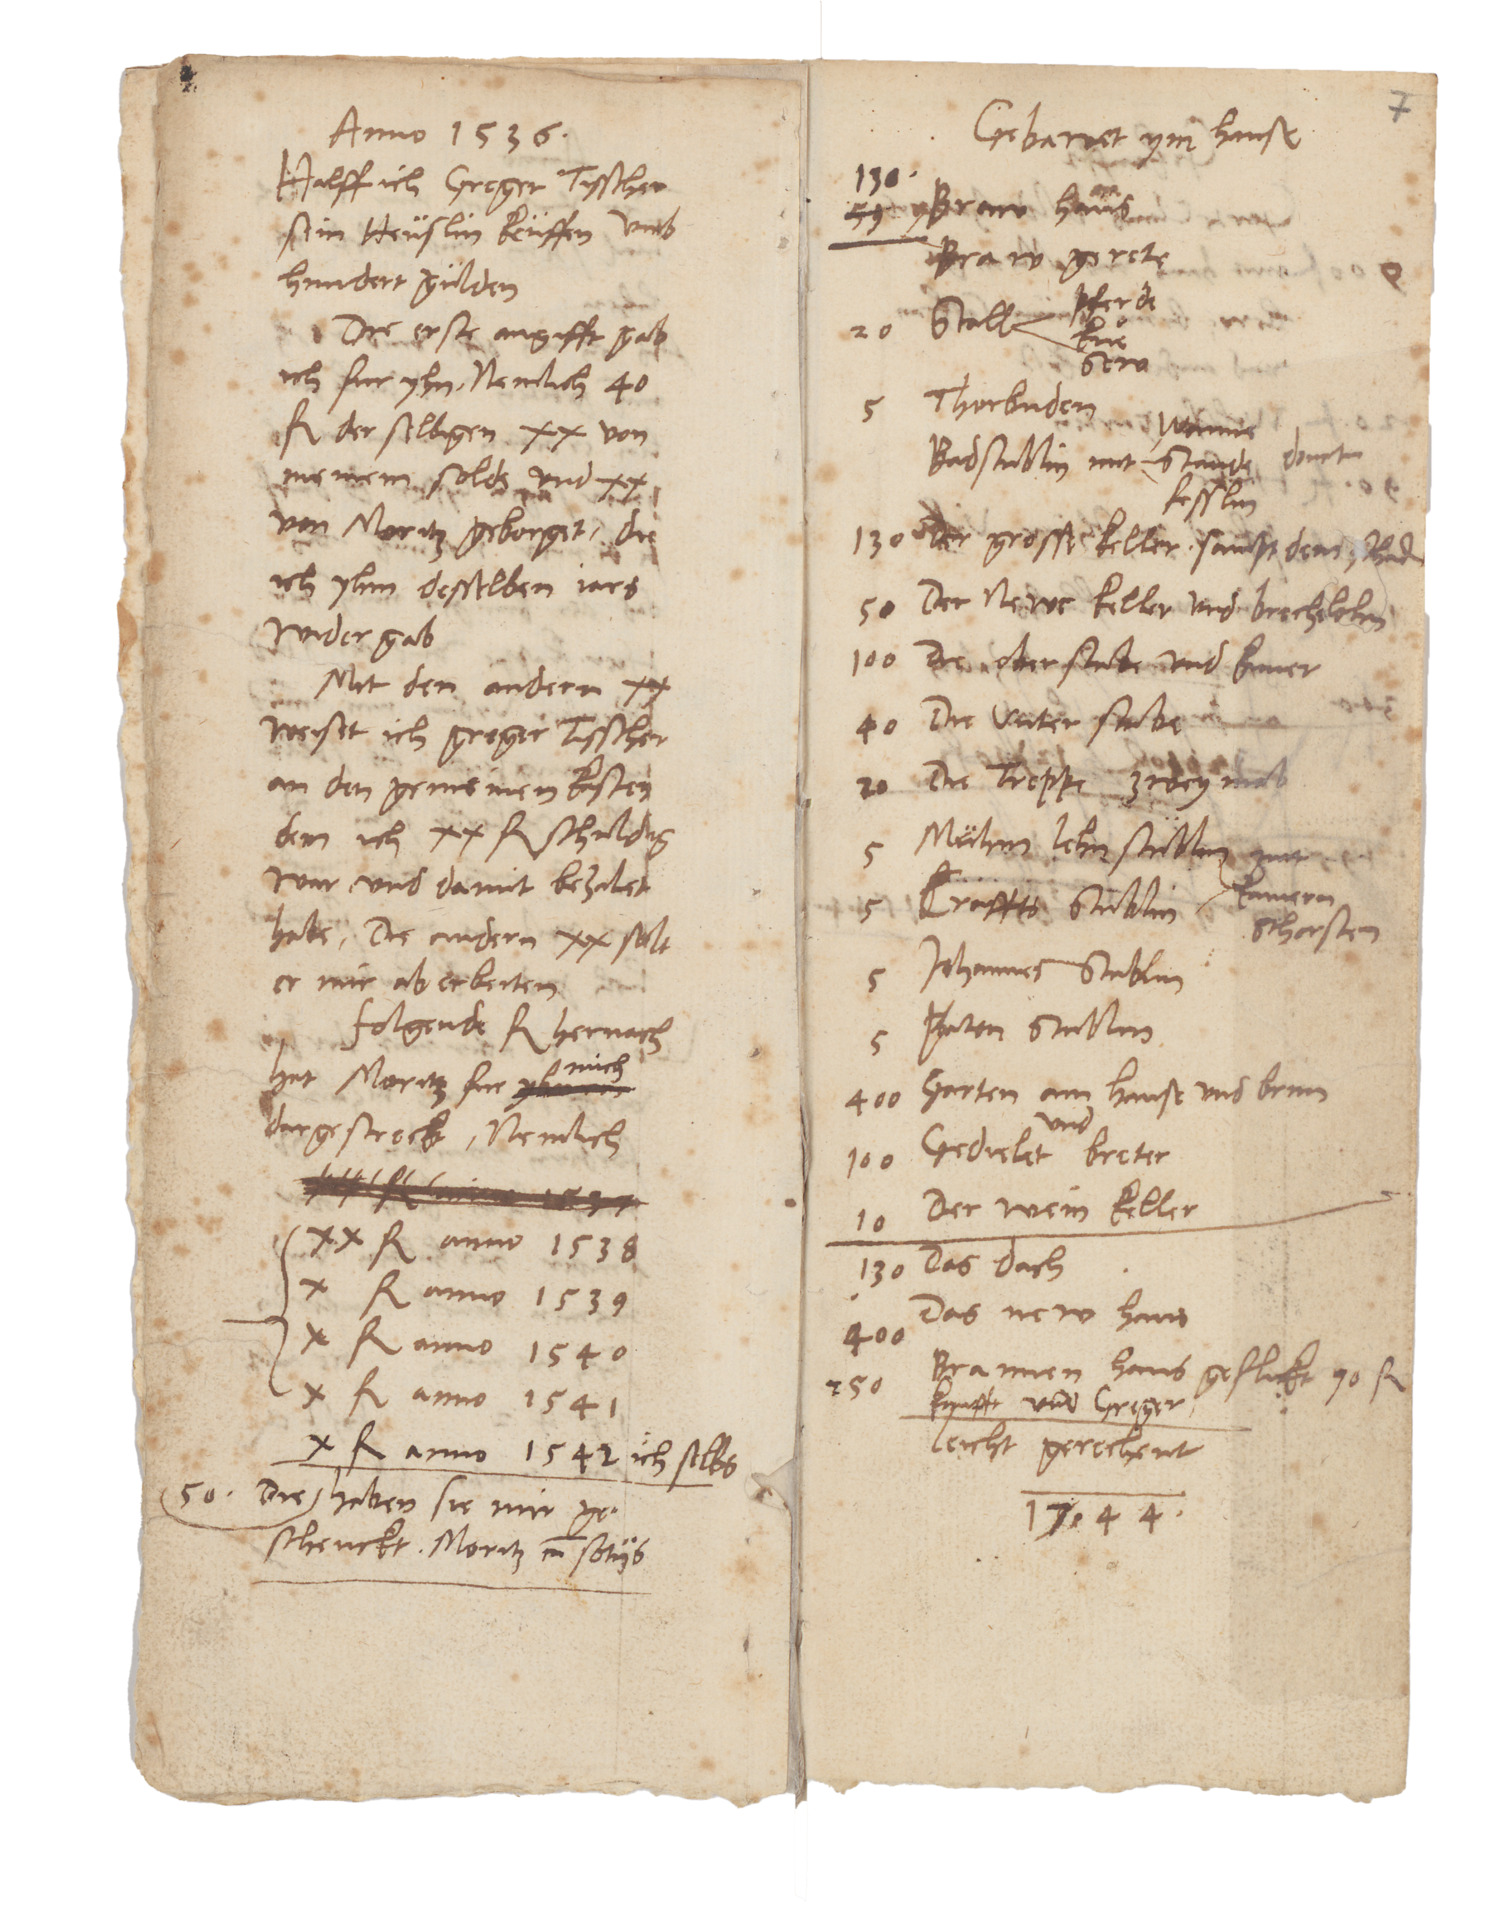 Anno 1536.
Halff ich Greger Tisscher
sein Heuslin keuffen umb
hundert gülden
Die erste angifft gab
ich fur yhn, Nemlich 40
fl der selbigen xx von
meinem solde und xx
von Moritz geborget, die
ich yhm desselben iars
widdergab
Mit den andern xx
weiset ich greger Tisscher
an den gemeinen kasten
dem ich xx fl schuldig
war und damit bezalet
habe, Die andern xx solt
er mir ab erbeiten
Folgende fl hernach
hat Moritz fur mich
dargestreckt, Nemlich
xx fl anno 1538
x fl anno 1539
x fl anno 1540
x fl anno 1541
x fl anno 1542 ich selbs
50. Die haben sie mir ge
schenckt. Moritz cum sotijs
7
Gebawet ym hause
130.
59 Braw haus
Braw gerete
20 Stall pferde
kue
Sew
5 Thorbuden
Badstublin mit wanne
Stande
kesslin
130 Der grosse keller sampt dem
50 Der Newe keller und
100 Die oberstube und kamer
40 Die Unter stube
20 Die Treppe zwey mal
5 Muhm lehn stublin mit
5 Stublin kamern
Schorsten
5 Johannes Stublin
5 Stublin
400 Garten am hause und brun
100 Gedielet und breter
10 Der wein keller
130 Das dach
400 Das new haus
250 haus geflickt 90 fl
und Greger
leicht gerechent
1744.